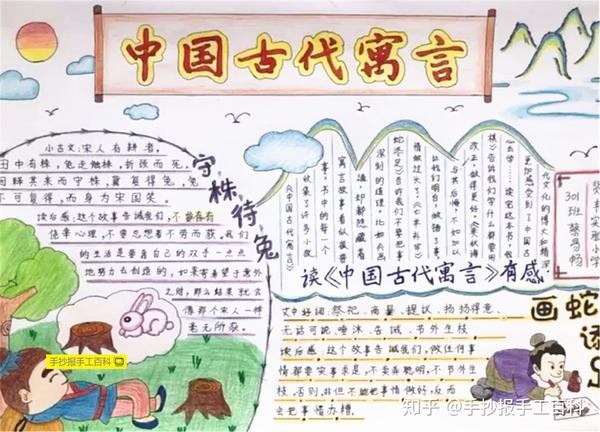 中国古代寓言
小古文:宋人有耕者,
田中有株,兔走触株,折颈而死,
因释其耒而守株,冀复得兔,兔
不可复得,而身为宋国笑。
读后感:这个故事告诫我们,不要存有
侥幸心理,不要总想着不劳而获。我们
的生活是要靠自己的双手一点点
地努力去创造的,如果寄希望于意外
之财,那么结果就会
像那个宋人一样
毫无所获。
守株待兔
收集了许多小故
事,书中的每一个
寓言故事看似很普
通,却都隐藏着
深刻的道理。比如《画
蛇添足》告诉我们不要把事
情做过了头,《亡羊补牢》
让我们明白,做错了事,
改正,做得更好。《学弈》
棋》告诉我们学什么都要用
301班
读《中国古代寓言》有感
文中好词:祭祀、商量、提议、扬扬得意、
无话可说、唾沫、告诫、节外生枝
读后感:这个故事告诫我们,做任何事
情都要实事求是,不卖弄聪明,不节外生
枝。否则,非但不能把事情做好,反而
会把事情办糟。
画蛇添足
手抄报手工百科
知乎 @手抄报手工百科